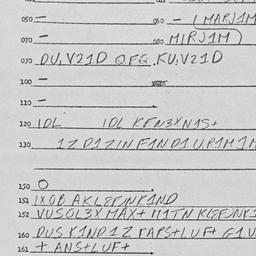 050 — 060 — (MARJ1M
070 — 080 MIRJ1M)
090 DU,V21D QFQ KU,V21D
100 —
110 —
120 1DL 1DL KFN3XN1S+
130 1Z D1Z1N F1ND1 U,P1M1M
150 O
151 1XOB AKL8FJNK1ND
152 VUSOL3X MAX+ M1TN KL8FJNK1
160 DUS K1ND1Z FARS+LUF+ G1U
161 + ANS+LUF+